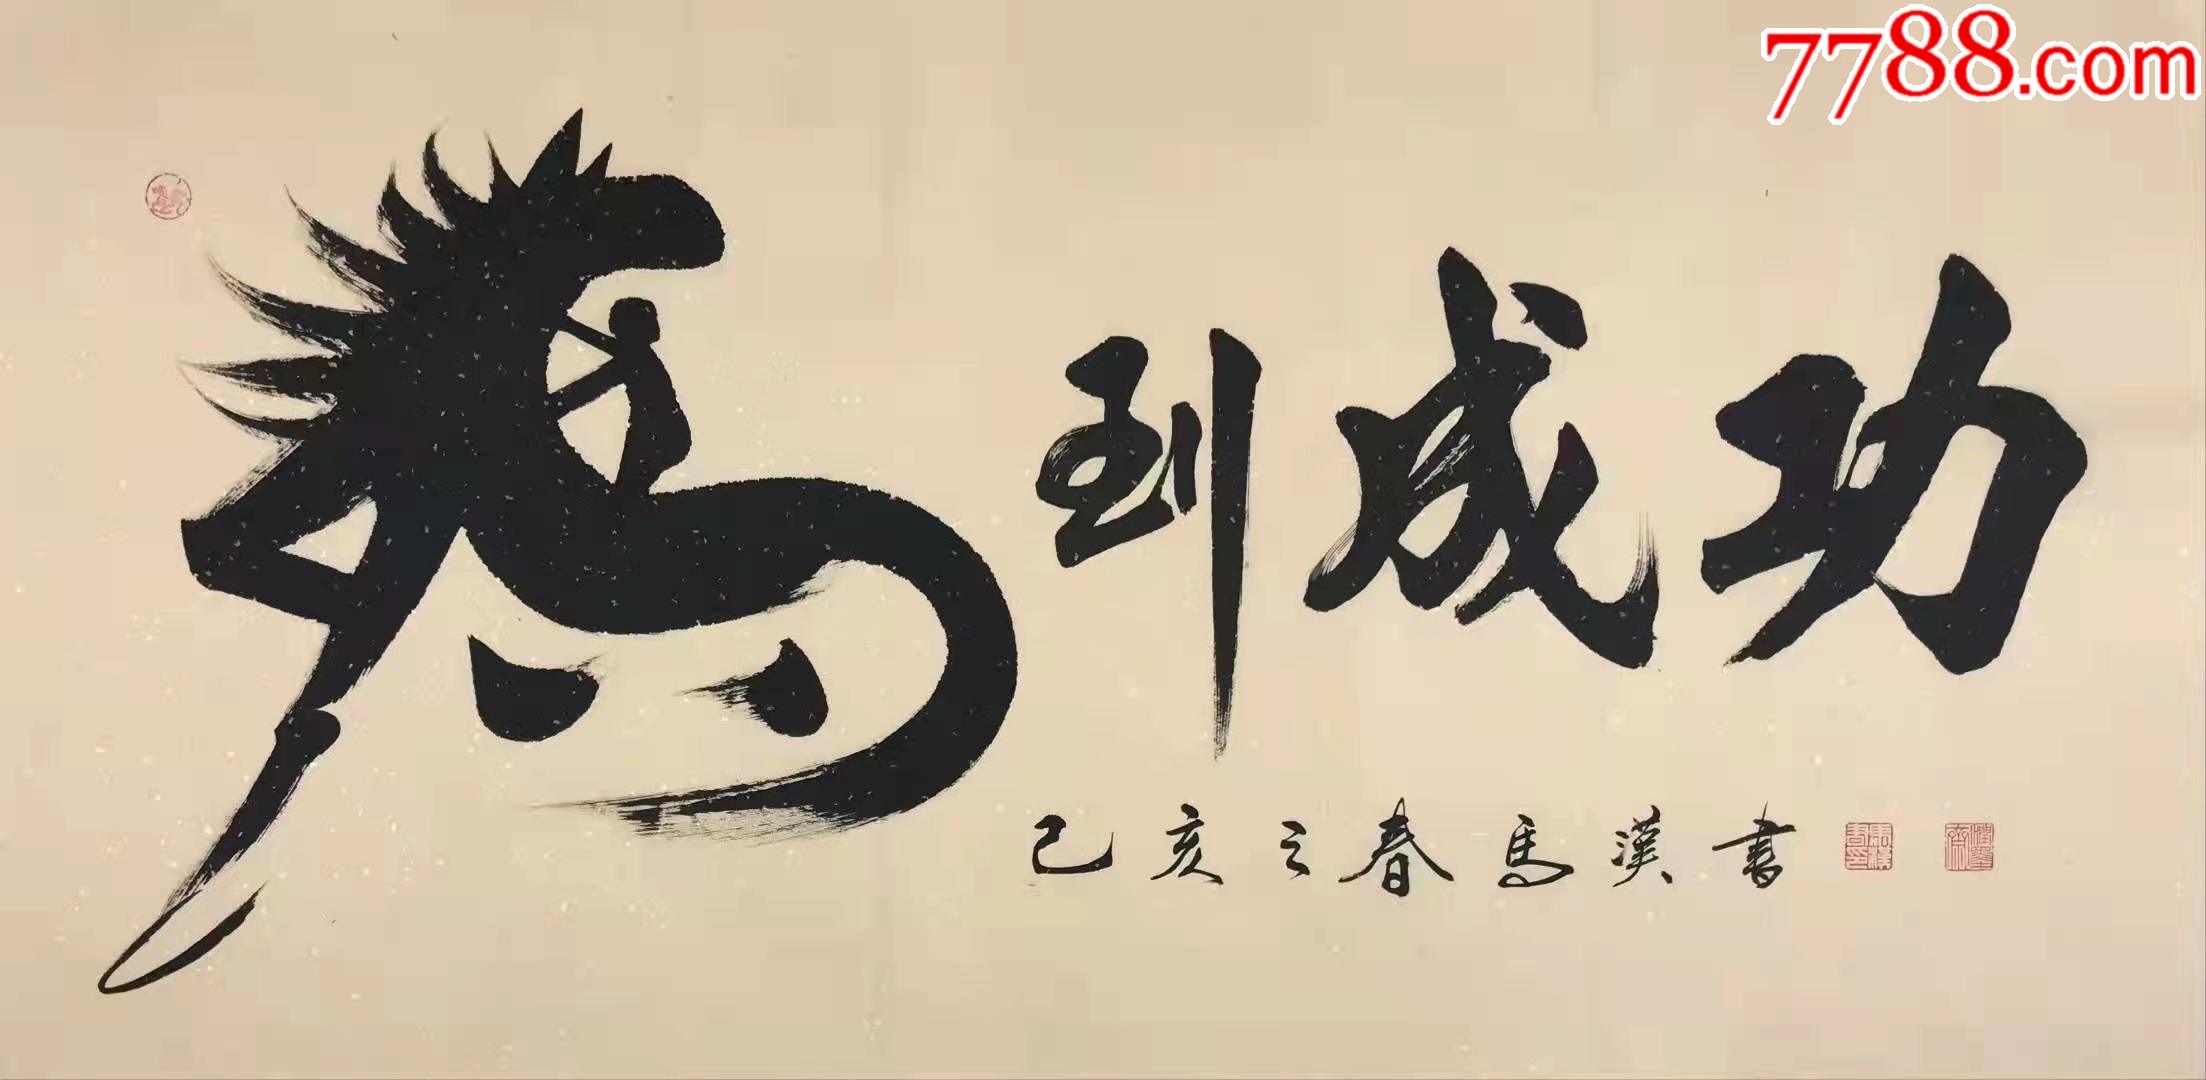 7788.com
馬到成功
己亥之春馬漢書